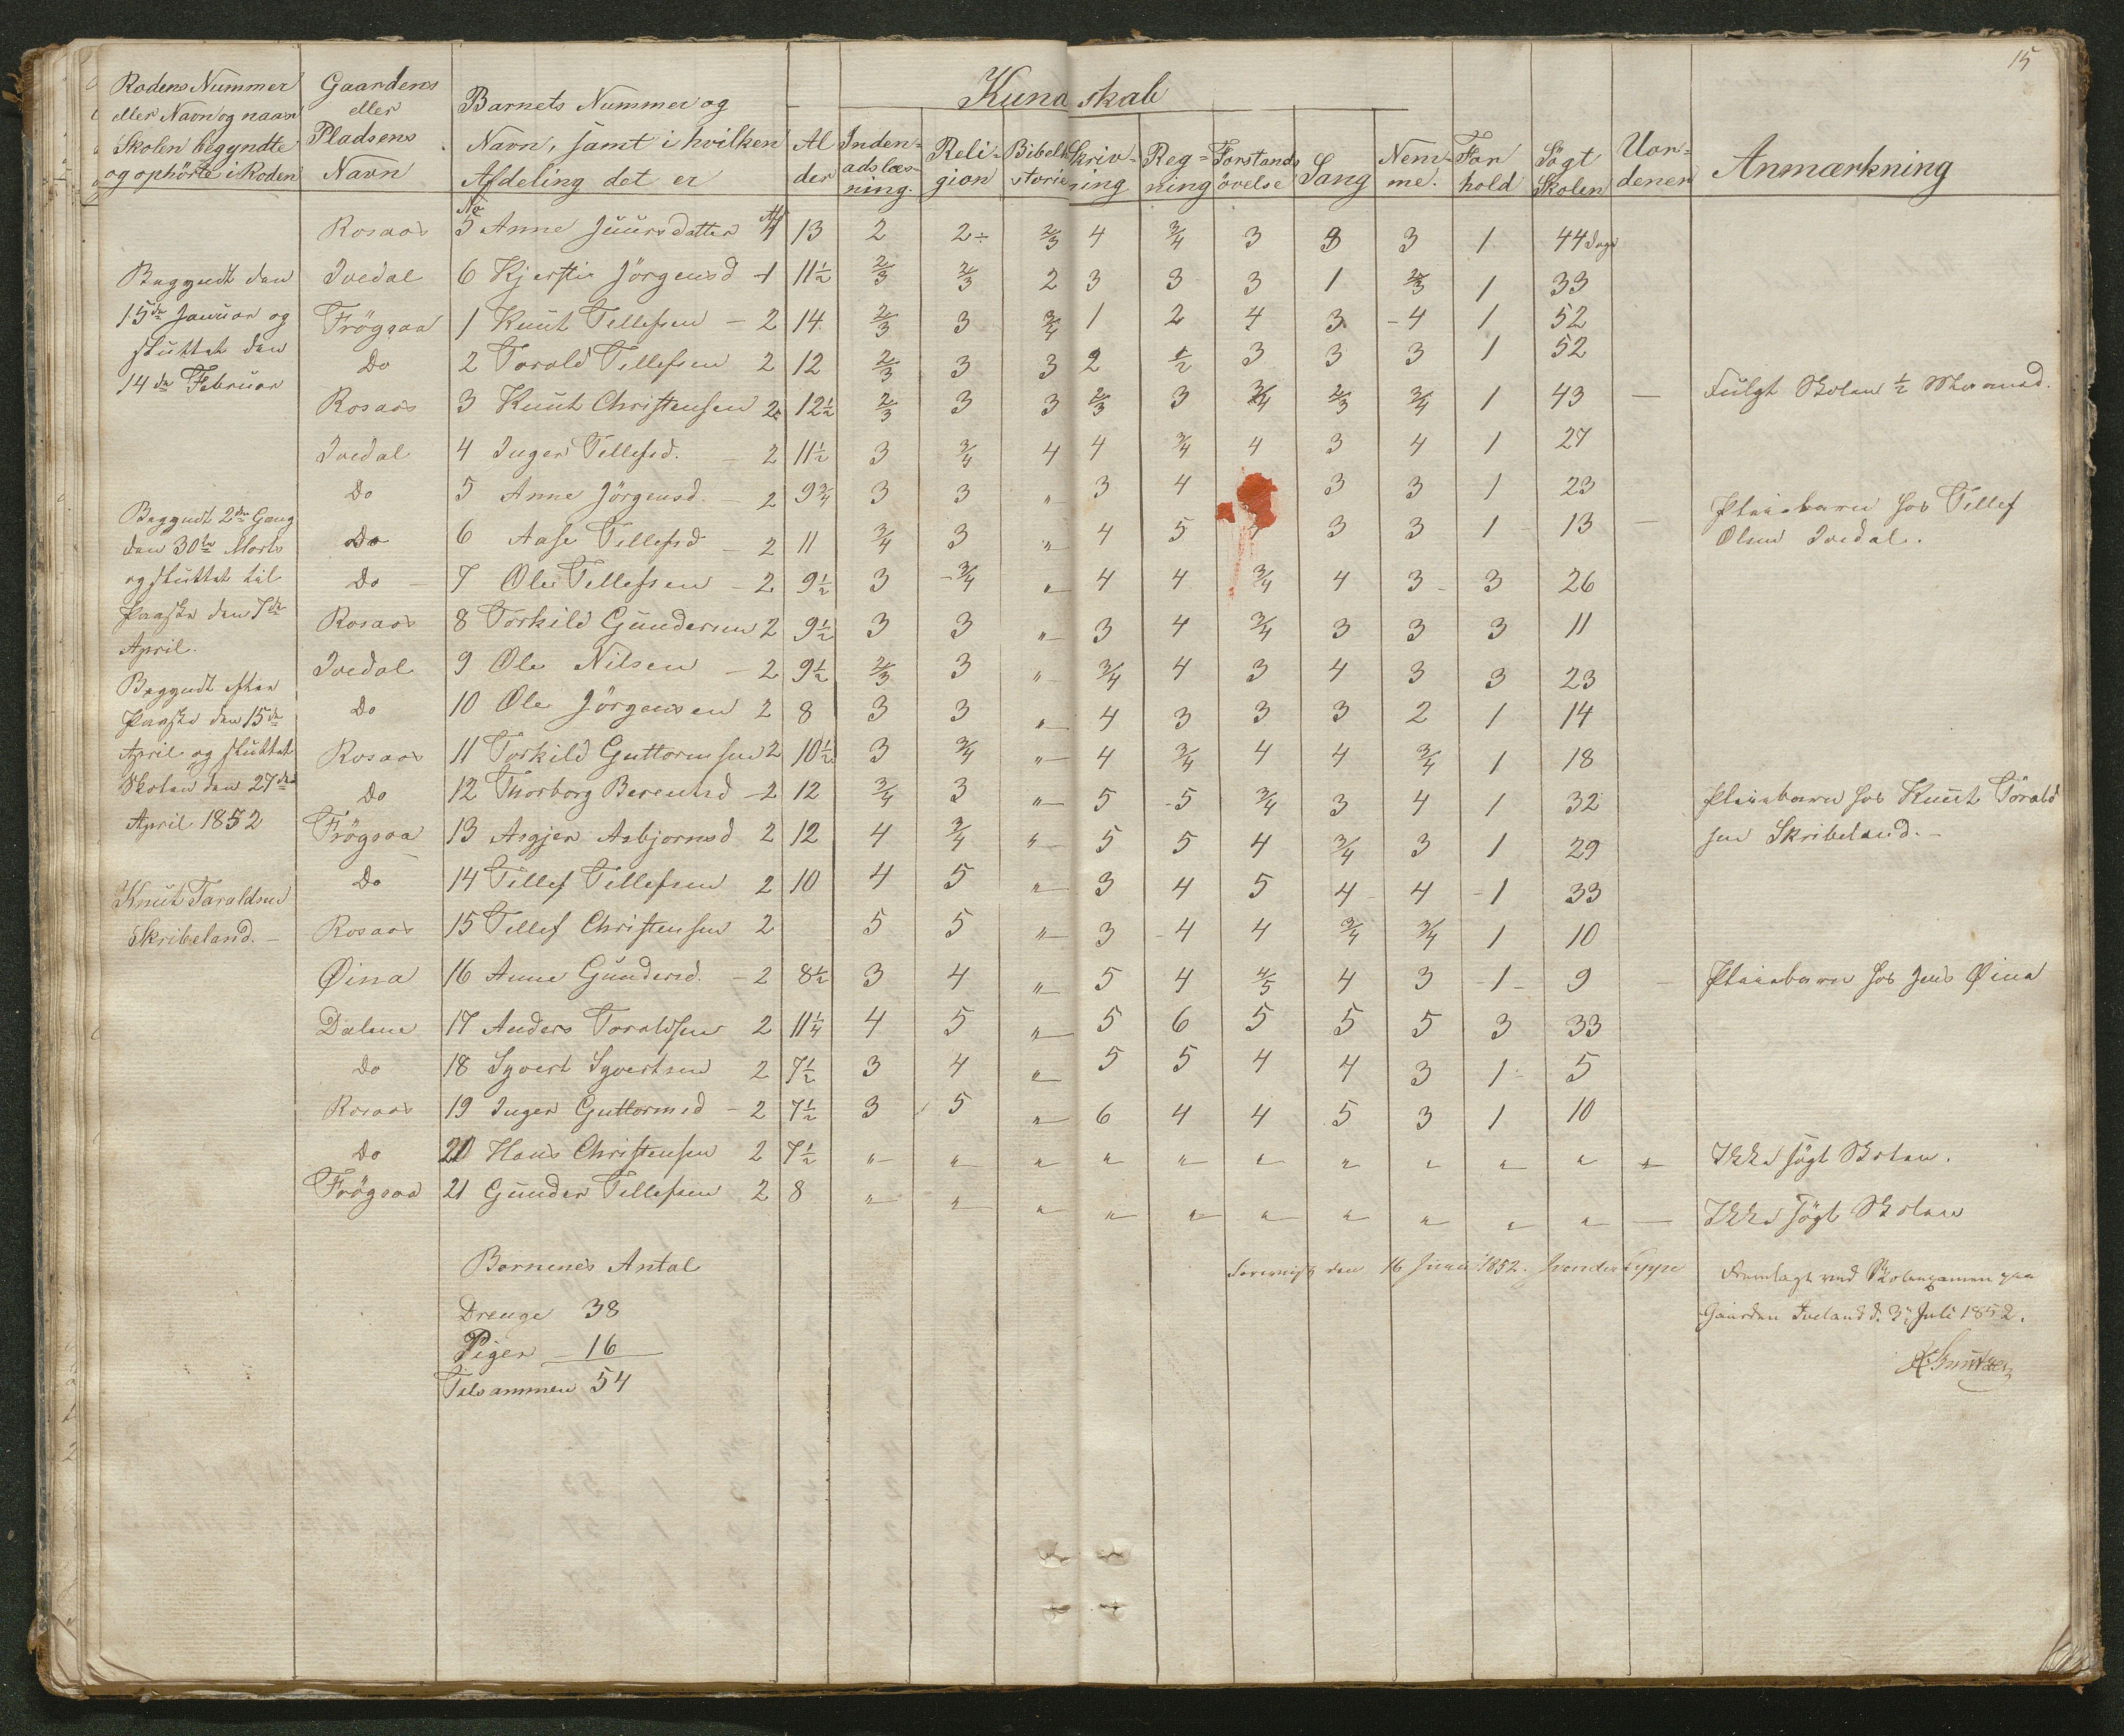 15
Rodens Nummer eller Navn og naar Skolen begyndte og ophörte i Roden | Gaardens eller Pladsens Navn | Barnets Nummer og Navn, samt i hvilken Afdeling det er | Alder | Kundskab | Indenadslæsning. | Religion | Bibelhistorie | Skrivning | Regning | Forstandsövelse | Sang | Nemme. | Forhold | Sögt Skolen | Uordenen | Anmærkning
Rosaas No 5 Anne Juursdatter Afd 1 13 2 2÷ 2/3 4 3/4 3 3 3 1 44 Dage
Ivedal 6 Kjersti Jörgensd 1 11½ 2/3 2/3 2 3 3 3 1 2/3 1 33
Frögsaa 1 Knut Tellefsen - 2 14 2/3 3 3/4 1 2 4 3 4 1 52
Do 2 Torold Tellefsen 2 12 2/3 3 3 2 1/2 3 3 3 1 52
Rosaas 3 Knut Christensen 2 12½ 2/3 3 3 2/3 3 3/4 2/3 3/4 1 43 — Fulgt Skolen ½ Maaned.
Ivedal 4 Inger Tellefsd. - 2 11½ 3 3/4 4 4 3/4 4 3 4 1 27
Do 5 Anne Jörgensd. - 2 9¾ 3 3 „ 3 4 3 3 1 23
Do 6 Aase Tellefsd - 2 11 3/4 3 „ 4 5 3 3 1 13 — Pleiebarn hos Tellef Olsen Ivedal.
Do 7 Ole Tellefsen - 2 9½ 3 3/4 „ 4 4 3/4 4 3 3 26
Rosaas 8 Torkild Gundersen 2 9½ 3 3 „ 3 4 3/4 3 3 3 11
Ivedal 9 Ole Nilsen - 2 9½ 2/3 3 „ 3/4 4 3 4 3 3 23
Do 10 Ole Jörgensen 2 8 3 3 „ 4 3 3 3 2 1 14
Rosaas 11 Torkild Guttormsen 2 10½ 3 3/4 „ 4 3/4 4 4 3/4 1 18
Do 12 Thorborg Berentsd - 2 12 3/4 3 „ 5 5 3/4 3 4 1 32 Pleiebarn hos Knut Törald sen Skribeland. -
Frögsaa 13 Asgjer Asbjornsd 2 12 4 3/4 „ 5 5 4 3/4 3 1 29
Do 14 Tellef Tellefsen 2 10 4 5 „ 3 4 5 4 4 1 33
Rosaas 15 Tellef Christensen 2 5 5 „ 3 4 4 3/4 3/4 1 10
Øina 16 Anne Gundersd. - 2 8½ 3 4 „ 5 4 4/5 4 3 1 9 — Pleiebarn hos Jens Øina
Dalene 17 Anders Toraldsen 2 11¼ 4 5 „ 5 6 5 5 5 3 33
Do 18 Syvert Syvertsen 2 7½ 3 4 „ 5 5 4 4 3 1 5
Rosaas 19 Inger Guttormsd - 2 7½ 3 5 „ 6 4 4 5 3 1 10
Do 20 Hans Christensen 2 7½ „ „ „ „ „ „ „ „ „ „ „ Ikke sögt Skolen.
Frögsaa 21 Gunder Tellefsen 2 8 „ „ „ „ „ „ „ „ „ „ — Ikke sögt Skolen
Begyndt den
15de Januar og
sluttet den
14de Februar
Begyndt 2den Gang
den 30te Marts
og sluttet til
Paaske den 7de
April.
Begyndt efter
Paaske den 15de
April og sluttet
Skolen den 27de
April 1852
Knut Taraldsen
Skribeland. -
Bornenes Antal
Drenge 38
Piger 16
Tilsammen 54
Foreviist den 16 Junii 1852.
Fremlagt ved Skoleexamen paa
Gaarden Iveland d. 3. Juli 1852.